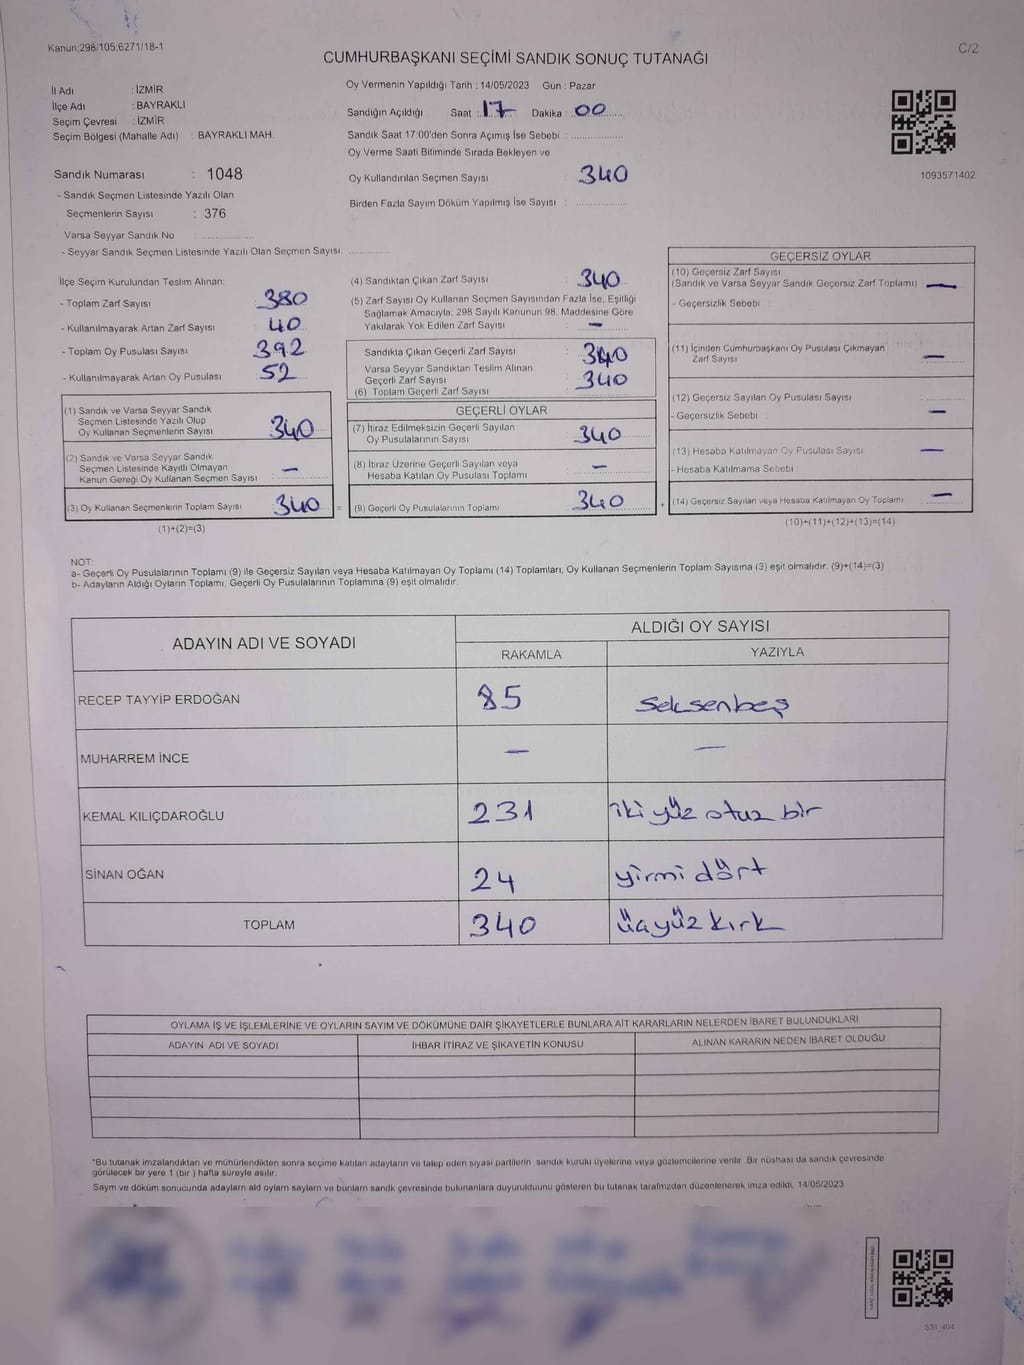 Kanun;298/105;6271/18-1
C/2
CUMHURBAŞKANI SEÇİMİ SANDIK SONUÇ TUTANAĞI
İl Adı : İZMİR
İlçe Adı : BAYRAKLI
Seçim Çevresi : İZMİR
Seçim Bölgesi (Mahalle Adı) : BAYRAKLI MAH.
Oy Vermenin Yapıldığı Tarih : 14/05/2023 Gün : Pazar
Sandığın Açıldığı Saat : 17 Dakika : 00
Sandık Saat 17:00'den Sonra Açımış İse Sebebi :
Oy Verme Saati Bitiminde Sırada Bekleyen ve
Oy Kullandırılan Seçmen Sayısı 340
Birden Fazla Sayım Döküm Yapılmış İse Sayısı :
1093571402
Sandık Numarası : 1048
- Sandık Seçmen Listesinde Yazılı Olan
Seçmenlerin Sayısı : 376
Varsa Seyyar Sandık No :
- Seyyar Sandık Seçmen Listesinde Yazılı Olan Seçmen Sayısı:
İlçe Seçim Kurulundan Teslim Alınan:
- Toplam Zarf Sayısı 380
- Kullanılmayarak Artan Zarf Sayısı 40
- Toplam Oy Pusulası Sayısı 392
- Kullanılmayarak Artan Oy Pusulası 52
(1) Sandık ve Varsa Seyyar Sandık
Seçmen Listesinde Yazılı Olup
Oy Kullanan Seçmenlerin Sayısı 340
(2) Sandık ve Varsa Seyyar Sandık
Seçmen Listesinde Kayıtlı Olmayan
Kanun Gereği Oy Kullanan Seçmen Sayısı : —
(3) Oy Kullanan Seçmenlerin Toplam Sayısı 340 =
(1)+(2)=(3)
(4) Sandıktan Çıkan Zarf Sayısı : 340
(5) Zarf Sayısı Oy Kullanan Seçmen Sayısından Fazla İse, Eşitliği
Sağlamak Amacıyla; 298 Sayılı Kanunun 98. Maddesine Göre
Yakılarak Yok Edilen Zarf Sayısı : —
Sandıkta Çıkan Geçerli Zarf Sayısı : 340
Varsa Seyyar Sandıktan Teslim Alınan
Geçerli Zarf Sayısı : 340
(6) Toplam Geçerli Zarf Sayısı :
GEÇERLİ OYLAR
(7) İtiraz Edilmeksizin Geçerli Sayılan
Oy Pusulalarının Sayısı 340
(8) İtiraz Üzerine Geçerli Sayılan veya
Hesaba Katılan Oy Pusulası Toplamı —
(9) Geçerli Oy Pusulalarının Toplamı 340 +
GEÇERSİZ OYLAR
(10) Geçersiz Zarf Sayısı
(Sandık ve Varsa Seyyar Sandık Geçersiz Zarf Toplamı) : —
- Geçersizlik Sebebi :
(11) İçinden Cumhurbaşkanı Oy Pusulası Çıkmayan
Zarf Sayısı —
(12) Geçersiz Sayılan Oy Pusulası Sayısı :
- Geçersizlik Sebebi : —
(13) Hesaba Katılmayan Oy Pusulası Sayısı —
- Hesaba Katılmama Sebebi :
(14) Geçersiz Sayılan veya Hesaba Katılmayan Oy Toplamı —
(10)+(11)+(12)+(13)=(14)
NOT:
a- Geçerli Oy Pusulalarının Toplamı (9) ile Geçersiz Sayılan veya Hesaba Katılmayan Oy Toplamı (14) Toplamları, Oy Kullanan Seçmenlerin Toplam Sayısına (3) eşit olmalıdır. (9)+(14)=(3)
b- Adayların Aldığı Oyların Toplamı, Geçerli Oy Pusulalarının Toplamına (9) eşit olmalıdır.
ADAYIN ADI VE SOYADI
ALDIĞI OY SAYISI
RAKAMLA YAZIYLA
RECEP TAYYİP ERDOĞAN 85 seksenbeş
MUHARREM İNCE — —
KEMAL KILIÇDAROĞLU 231 iki yüz otuz bir
SİNAN OĞAN 24 yirmi dört
TOPLAM 340 üçyüz kırk
OYLAMA İŞ VE İŞLEMLERİNE VE OYLARIN SAYIM VE DÖKÜMÜNE DAİR ŞİKAYETLERLE BUNLARA AİT KARARLARIN NELERDEN İBARET BULUNDUKLARI
ADAYIN ADI VE SOYADI İHBAR İTİRAZ VE ŞİKAYETİN KONUSU ALINAN KARARIN NEDEN İBARET OLDUĞU
*Bu tutanak imzalandıktan ve mühürlendikten sonra seçime katılan adayların ve talep eden siyasi partilerin sandık kurulu üyelerine veya gözlemcilerine verilir. Bir nüshası da sandık çevresinde
görülecek bir yere 1 (bir ) hafta süreyle asılır.
Saym ve döküm sonucunda adaylarn ald oylarn saylarn ve bunlarn sandk çevresinde bulunanlara duyurulduunu gösteren bu tutanak tarafmzdan düzenlenerek imza edildi. 14/05/2023